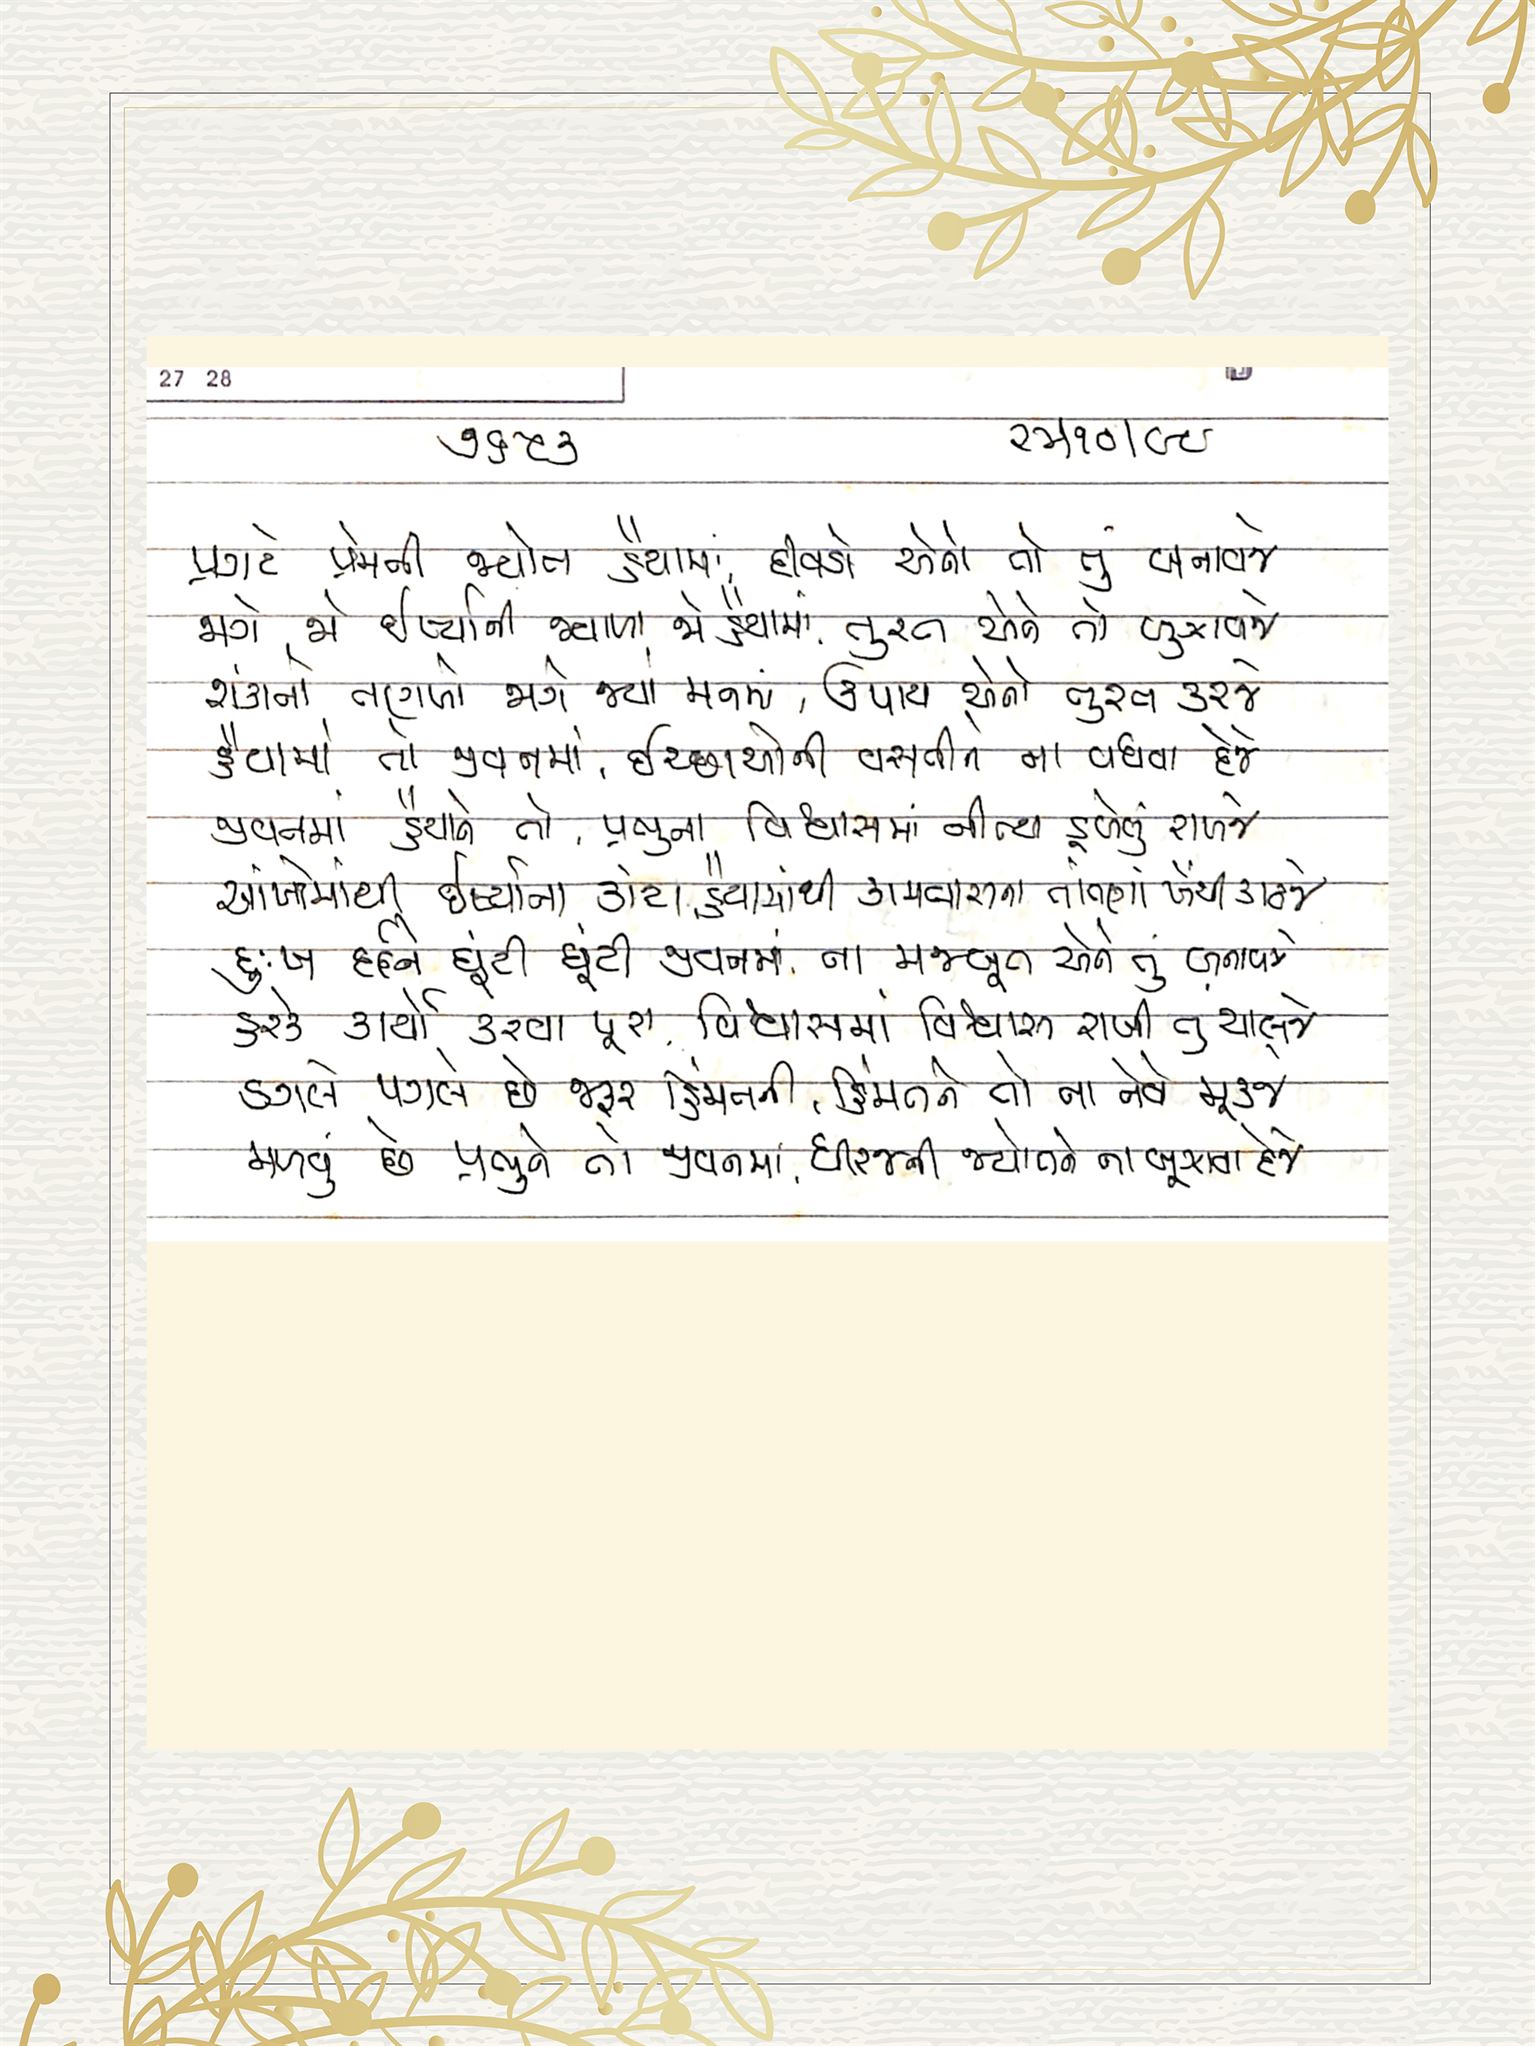 27 28
૭૬૮૩
પ્રગટે પ્રેમની જ્યોત હૈયામાં, દીવડો એનો તો તું બનાવજે
જાગે, જો ઈર્ષ્યાની જ્વાળા જો હૈયામાં, તુરત એને તો બુઝાવજે
શંકાનો તણખો જાગે જ્યાં મનમાં, ઉપાય એનો તુરત કરજે
હૈયામાં તો જીવનમાં, ઈચ્છાઓની વસતીને ના વધવા દેજે
જીવનમાં હૈયાને તો, પ્રભુના વિશ્વાસમાં નીત્ય ડૂબેલું રાખજે
આંખોમાંથી ઈર્ષ્યાના કાંટા, હૈયામાંથી કામવાસના તાંતણાં ખેંચી કાઢજે
દુઃખ દર્દને ઘૂંટી ઘૂંટી જીવનમાં, ના મજબૂત એને તું બનાવજે
હરેક કાર્યો કરવા પૂરા, વિશ્વાસમાં વિશ્વાસ રાખી તું ચાલજે
ડગલે પગલે છે જરૂર હિંમતની, હિંમતને તો ના નેવે મૂકજે
મળવું છે પ્રભુને તો જીવનમાં, ધીરજની જ્યોતને ના બૂઝાવા દેજે